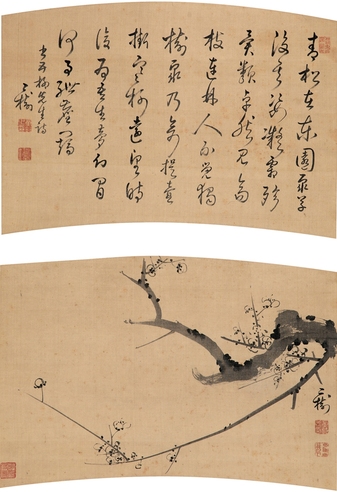 青松在東園衆草
沒其姿凝霜殄
異類卓然見高
枝連林人不覺獨
樹衆乃奇提壺
撫寒柯遠望時
復為吾生夢幻間
何事紲塵羈
先生詩
二樹
二樹